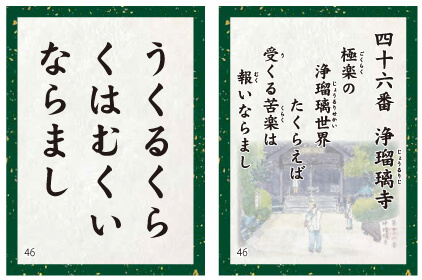 うくるくら
くはむくい
ならまし
46
四十六番 浄瑠璃寺
じょうるりじ
極楽の
ごくらく
浄瑠璃世界
じょうるりせかい
たくらえば
受くる苦楽は
う くらく
報いならまし
むく
46